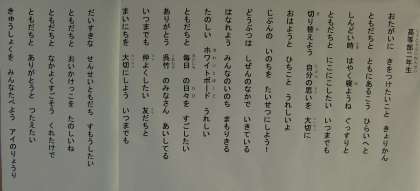 高等部二年生
おたがいに きをつけたいこと きょりかん
ともだちと ともにあるこう ひらいへと
しんどい時 はやく寝ようね ぐっすりと
ともだちと にこにこしたい いつまでも
切り替えよう 自分の思いを 大切に
おはようと ひとこと うれしいよ
じぶんの いのちを たいせつにしよう！
どうぶつは しぜんのなかで いきている
はなれよう みんなのいのち まもりきる
たのしい ホワイトボード うれしい
ともだちと 毎日 の日々を すごしたい
ありがとう 長竹 のみなさん あいしてる
いつまでも 仲よくしたい 友だちと
まいにちを 大切にしよう いつまでも
だいすきな せんせいともだち すもうしたい
ともだちと おいかけっこを たのしいね
ともだちと なかよくすごそう くれたけで
ともだちと ありがとうと つたえたい
きゅうしょくを みんなたべよう アイのりょうり